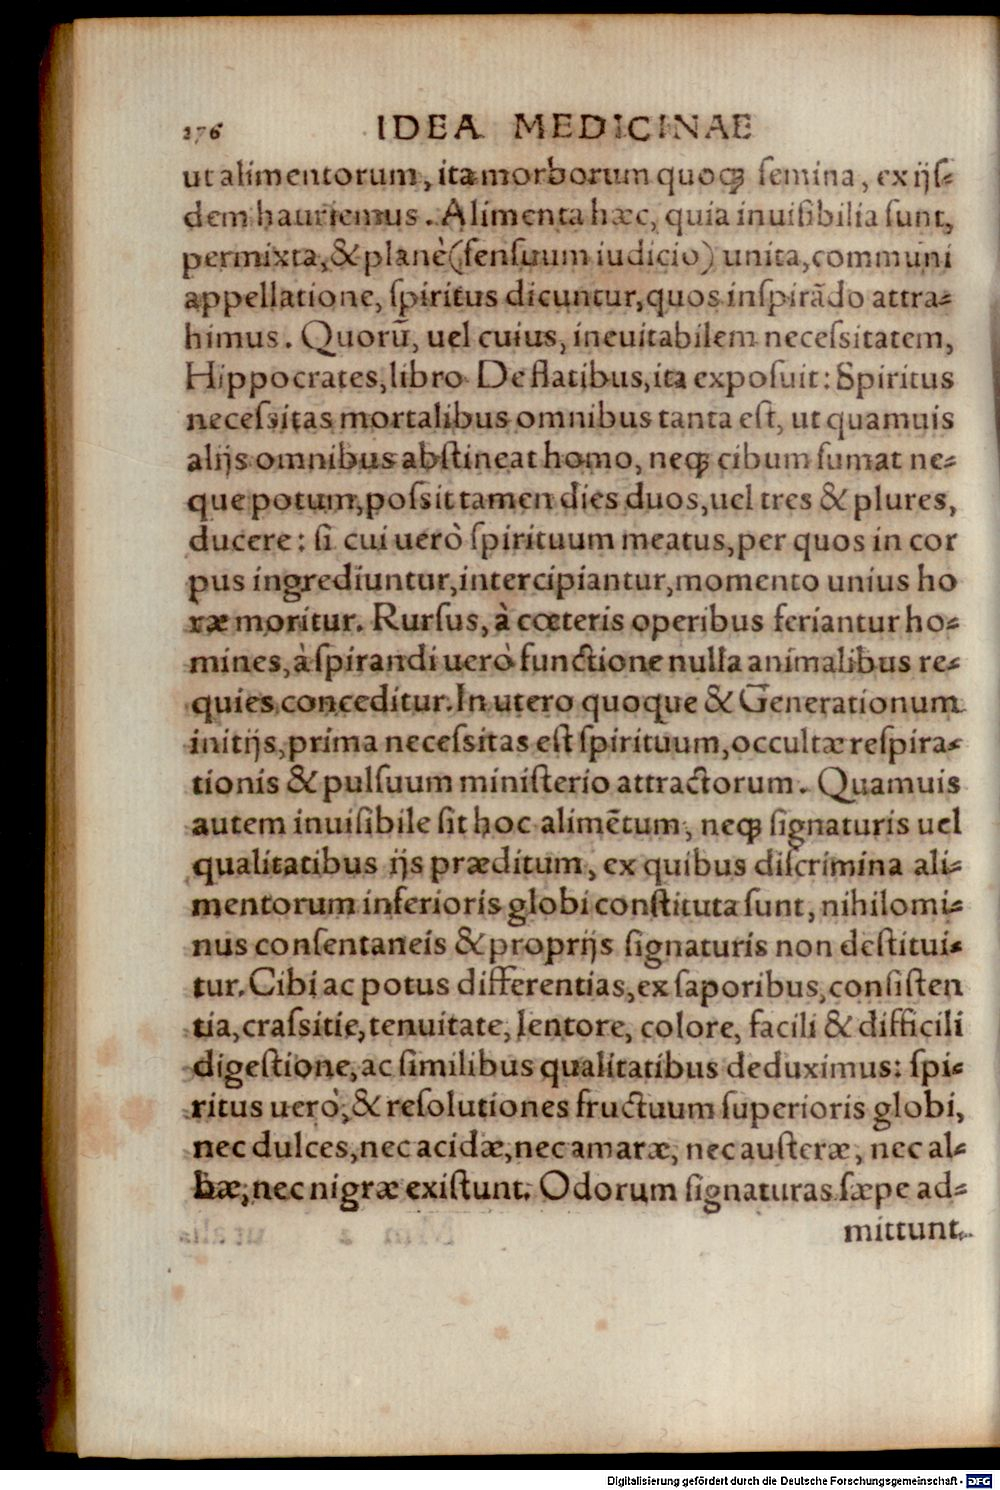 276 IDEA MEDICINAE
ut alimentorum, ita morborum quoqꝫ ſemina, ex ijſ-
dem hauriemus. Alimenta hæc, quia inuiſibilia ſunt,
permixta, & planè (ſenſuum iudicio) unita, communi
appellatione, ſpiritus dicuntur, quos inſpirãdo attra-
himus. Quorũ, uel cuius, ineuitabilem neceſsitatem,
Hippocrates, libro De flatibus, ita expoſuit: Spiritus
neceſsitas mortalibus omnibus tanta eſt, ut quamuis
alijs omnibus abſtineat homo, neqꝫ cibum ſumat ne-
que potum, poſsit tamen dies duos, uel tres & plures,
ducere: ſi cui uerò ſpirituum meatus, per quos in cor
pus ingrediuntur, intercipiantur, momento unius ho
ræ moritur. Rurſus, à cœteris operibus feriantur ho-
mines, à ſpirandi uerò functione nulla animalibus re-
quies conceditur. In utero quoque & Generationum
initijs, prima neceſsitas eſt ſpirituum, occultæ reſpira-
tionis & pulſuum miniſterio attractorum. Quamuis
autem inuiſibile ſit hoc alimẽtum, neqꝫ ſignaturis uel
qualitatibus ijs præditum, ex quibus diſcrimina ali-
mentorum inferioris globi conſtituta ſunt, nihilomi-
nus conſentaneis & proprijs ſignaturis non deſtitui-
tur. Cibi ac potus differentias, ex ſaporibus, conſiſten
tia, craſsitie, tenuitate, lentore, colore, facili & difficili
digeſtione, ac ſimilibus qualitatibus deduximus: ſpi-
ritus uerò, & reſolutiones fructuum ſuperioris globi,
nec dulces, nec acidæ, nec amaræ, nec auſteræ, nec al-
bæ, nec nigræ exiſtunt. Odorum ſignaturas ſæpe ad-
mittunt.
Digitalisierung gefördert durch die Deutsche Forschungsgemeinschaft - DFG